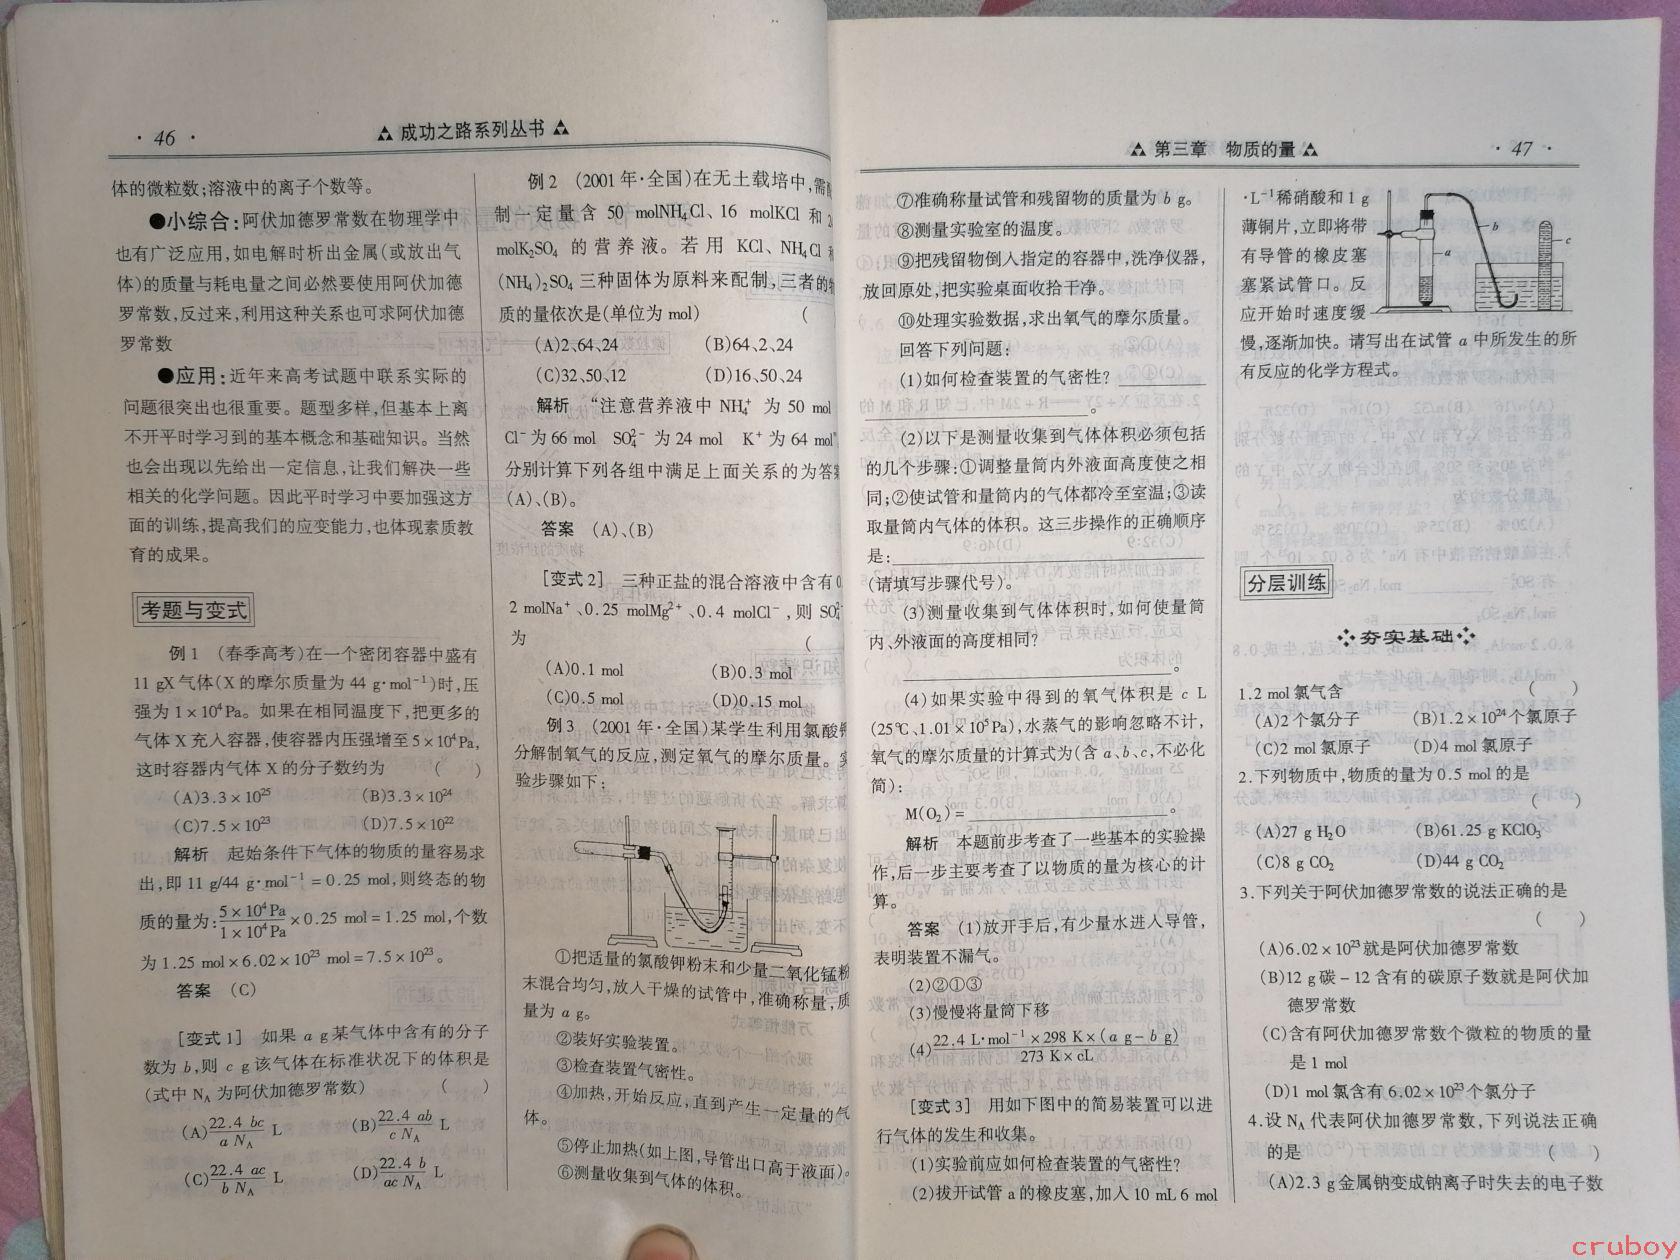 · 46 ·
成功之路系列丛书
体的微粒数;溶液中的离子个数等。
●小综合:阿伏加德罗常数在物理学中
也有广泛应用,如电解时析出金属(或放出气
体)的质量与耗电量之间必然要使用阿伏加德
罗常数,反过来,利用这种关系也可求阿伏加德
罗常数
●应用:近年来高考试题中联系实际的
问题很突出也很重要。题型多样,但基本上离
不开平时学习到的基本概念和基础知识。当然
也会出现以先给出一定信息,让我们解决一些
相关的化学问题。因此平时学习中要加强这方
面的训练,提高我们的应变能力,也体现素质教
育的成果。
考题与变式
例1 (春季高考)在一个密闭容器中盛有
11 gX气体(X的摩尔质量为44 g·mol⁻¹)时,压
强为1×10⁴Pa。如果在相同温度下,把更多的
气体X充入容器,使容器内压强增至5×10⁴Pa,
这时容器内气体X的分子数约为 ( )
(A)3.3×10²⁵ (B)3.3×10²⁴
(C)7.5×10²³ (D)7.5×10²²
解析 起始条件下气体的物质的量容易求
出,即11 g/44 g·mol⁻¹=0.25 mol,则终态的物
质的量为:5×10⁴Pa/1×10⁴Pa×0.25 mol=1.25 mol,个数
为1.25 mol×6.02×10²³ mol=7.5×10²³。
答案 (C)
[变式1] 如果a g某气体中含有的分子
数为b,则c g该气体在标准状况下的体积是
(式中N_A为阿伏加德罗常数) ( )
(A)22.4 bc/a N_A L (B)22.4 ab/c N_A L
(C)22.4 ac/b N_A L (D)22.4 b/ac N_A L
例2 (2001年·全国)在无土栽培中,需
制一定量含50 molNH₄Cl、16 molKCl和
molK₂SO₄的营养液。若用KCl、NH₄Cl
(NH₄)₂SO₄三种固体为原料来配制,三者的物
质的量依次是(单位为mol) (
(A)2、64、24 (B)64、2、24
(C)32、50、12 (D)16、50、24
解析 “注意营养液中NH₄⁺为50 mol
Cl⁻为66 mol SO₄²⁻为24 mol K⁺为64 mol”
分别计算下列各组中满足上面关系的为答案
(A)、(B)。
答案 (A)、(B)
[变式2] 三种正盐的混合溶液中含有0.
2 molNa⁺、0.25 molMg²⁺、0.4 molCl⁻,则SO₄²⁻
为 (
(A)0.1 mol (B)0.3 mol
(C)0.5 mol (D)0.15 mol
例3 (2001年·全国)某学生利用氯酸钾
分解制氧气的反应,测定氧气的摩尔质量。实
验步骤如下:
①把适量的氯酸钾粉末和少量二氧化锰粉
末混合均匀,放入干燥的试管中,准确称量,质
量为a g。
②装好实验装置。
③检查装置气密性。
④加热,开始反应,直到产生一定量的气
体。
⑤停止加热(如上图,导管出口高于液面)。
⑥测量收集到气体的体积。
第三章 物质的量
· 47 ·
⑦准确称量试管和残留物的质量为b g。
⑧测量实验室的温度。
⑨把残留物倒入指定的容器中,洗净仪器,
放回原处,把实验桌面收拾干净。
⑩处理实验数据,求出氧气的摩尔质量。
回答下列问题:
(1)如何检查装置的气密性?
。
(2)以下是测量收集到气体体积必须包括
的几个步骤:①调整量筒内外液面高度使之相
同;②使试管和量筒内的气体都冷至室温;③读
取量筒内气体的体积。这三步操作的正确顺序
是:
(请填写步骤代号)。
(3)测量收集到气体体积时,如何使量筒
内、外液面的高度相同?
。
(4)如果实验中得到的氧气体积是c L
(25℃、1.01×10⁵Pa),水蒸气的影响忽略不计,
氧气的摩尔质量的计算式为(含a、b、c,不必化
简):
M(O₂)= 。
解析 本题前步考查了一些基本的实验操
作,后一步主要考查了以物质的量为核心的计
算。
答案 (1)放开手后,有少量水进入导管,
表明装置不漏气。
(2)②①③
(3)慢慢将量筒下移
(4)22.4 L·mol⁻¹×298 K×(a g−b g)/273 K×cL
[变式3] 用如下图中的简易装置可以进
行气体的发生和收集。
(1)实验前应如何检查装置的气密性?
(2)拔开试管a的橡皮塞,加入10 mL6 mol
·L⁻¹稀硝酸和1 g
薄铜片,立即将带
有导管的橡皮塞
塞紧试管口。反
应开始时速度缓
慢,逐渐加快。请写出在试管a中所发生的所
有反应的化学方程式。
a
b
c
分层训练
夯实基础
1.2 mol氯气含 ( )
(A)2个氯分子 (B)1.2×10²⁴个氯原子
(C)2 mol氯原子 (D)4 mol氯原子
2.下列物质中,物质的量为0.5 mol的是
( )
(A)27 g H₂O (B)61.25 g KClO₃
(C)8 g CO₂ (D)44 g CO₂
3.下列关于阿伏加德罗常数的说法正确的是
( )
(A)6.02×10²³就是阿伏加德罗常数
(B)12 g碳−12含有的碳原子数就是阿伏加
德罗常数
(C)含有阿伏加德罗常数个微粒的物质的量
是1 mol
(D)1 mol氯含有6.02×10²³个氯分子
4.设N_A代表阿伏加德罗常数,下列说法正确
的是 ( )
(A)2.3 g金属钠变成钠离子时失去的电子数
cruboy